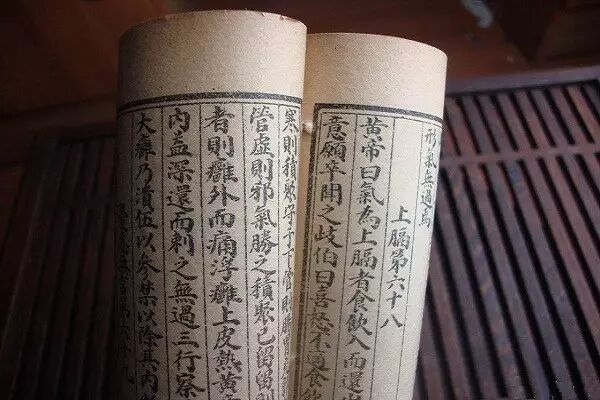 形氣無過焉
上膈第六十八
黃帝曰氣為上膈者食飲入而還出
意願卒聞之歧伯曰喜怒不適食飲
寒則積聚守于下管則腸胃
管虛則邪氣勝之積聚已留留則
者則癰外而痛浮癰上皮熱黃帝
內益深還而刺之無過三行察
大癰乃潰伍以參禁以除其內
憂恚無言第六十九